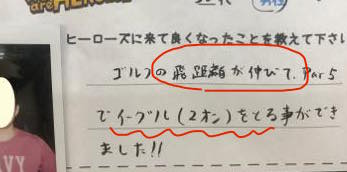 are HERO
男性
ヒーローズに来て良くなったことを教えて下さい
ゴルフの飛距離が伸びて、Par5
でイーグル(2オン)をとる事ができ
ました!!
VY